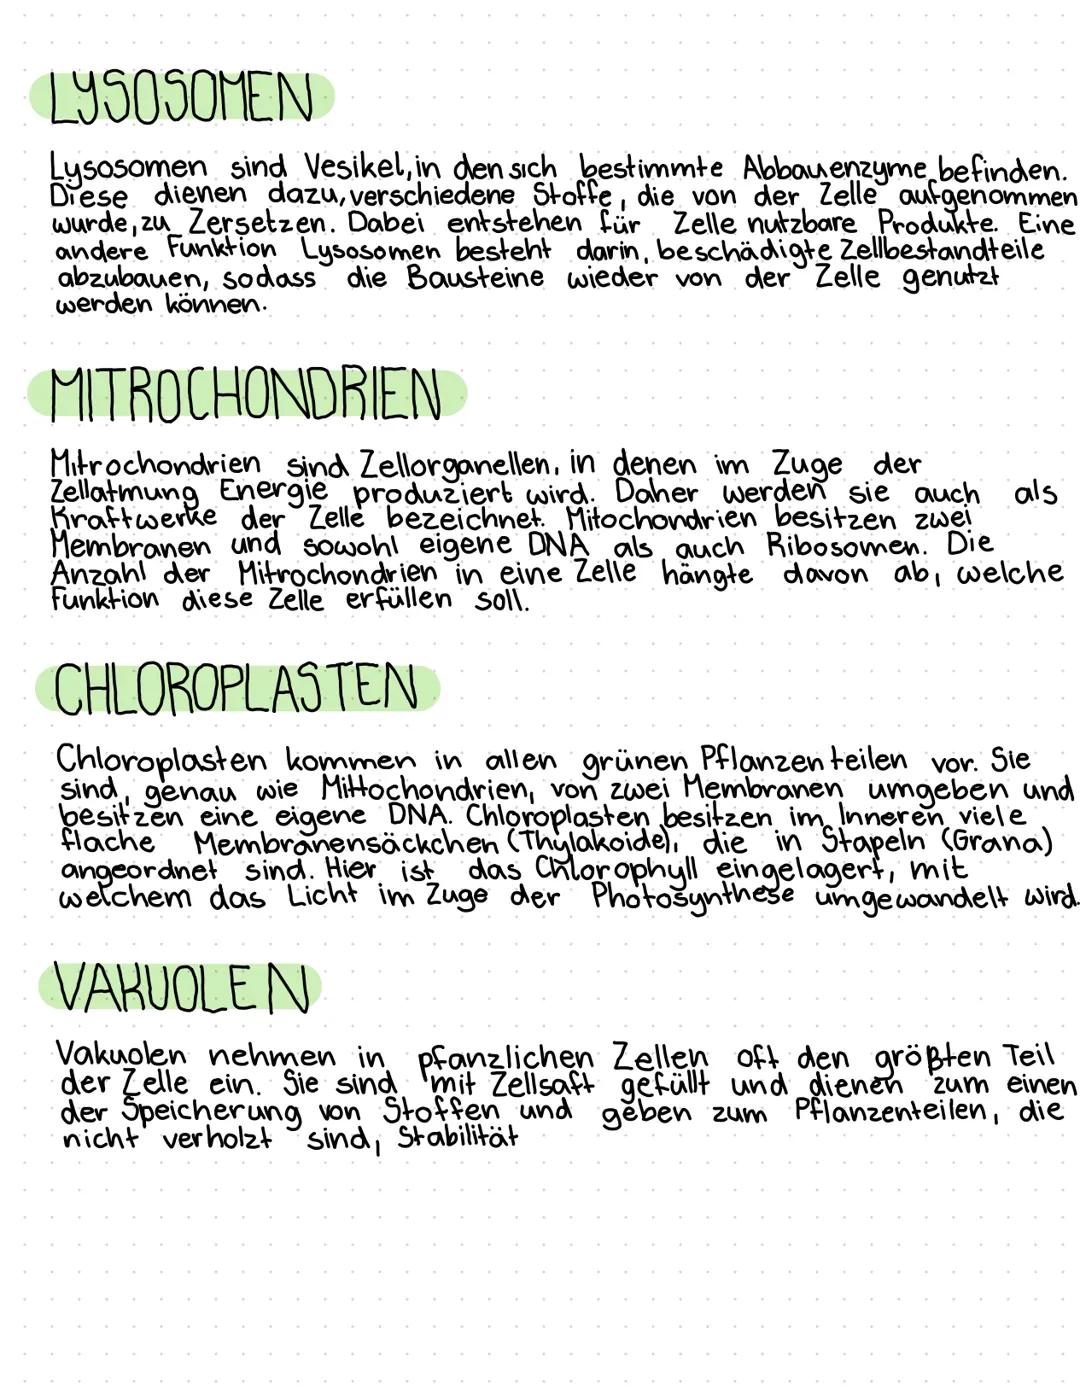 LYSOSOMEN
Lysosomen sind Vesikel, in den sich bestimmte Abbauenzyme befinden.
Diese dienen dazu, verschiedene Stoffe, die von der Zelle aufgenommen
wurde, zu Zersetzen. Dabei entstehen für Zelle nutzbare Produkte. Eine
andere Funktion Lysosomen besteht darin, beschädigte Zellbestandteile
abzubauen, sodass die Bausteine wieder von der Zelle genutzt
werden können.
MITROCHONDRIEN
Mitrochondrien sind Zellorganellen, in denen im Zuge der
Zellatmung Energie produziert wird. Daher werden sie auch als
Kraftwerke der Zelle bezeichnet. Mitochondrien besitzen zwei
Membranen und sowohl eigene DNA als auch Ribosomen. Die
Anzahl der Mitrochondrien in eine Zelle hängte davon ab, welche
Funktion diese Zelle erfüllen soll.
CHLOROPLASTEN
Chloroplasten kommen in allen grünen Pflanzenteilen vor. Sie
sind, genau wie Mittochondrien, von zwei Membranen umgeben und
besitzen eine eigene DNA. Chloroplasten besitzen im Inneren viele
flache Membranensäckchen (Thylakoide), die in Stapeln (Grana)
angeordnet sind. Hier ist das Chlorophyll eingelagert, mit
welchem das Licht im Zuge der Photosynthese umgewandelt wird.
VAKUOLEN
Vakuolen nehmen in pfanzlichen Zellen oft den größten Teil
der Zelle ein. Sie sind mit Zellsaft gefüllt und dienen zum einen
der Speicherung von Stoffen und geben zum Pflanzenteilen, die
nicht verholzt sind, Stabilität